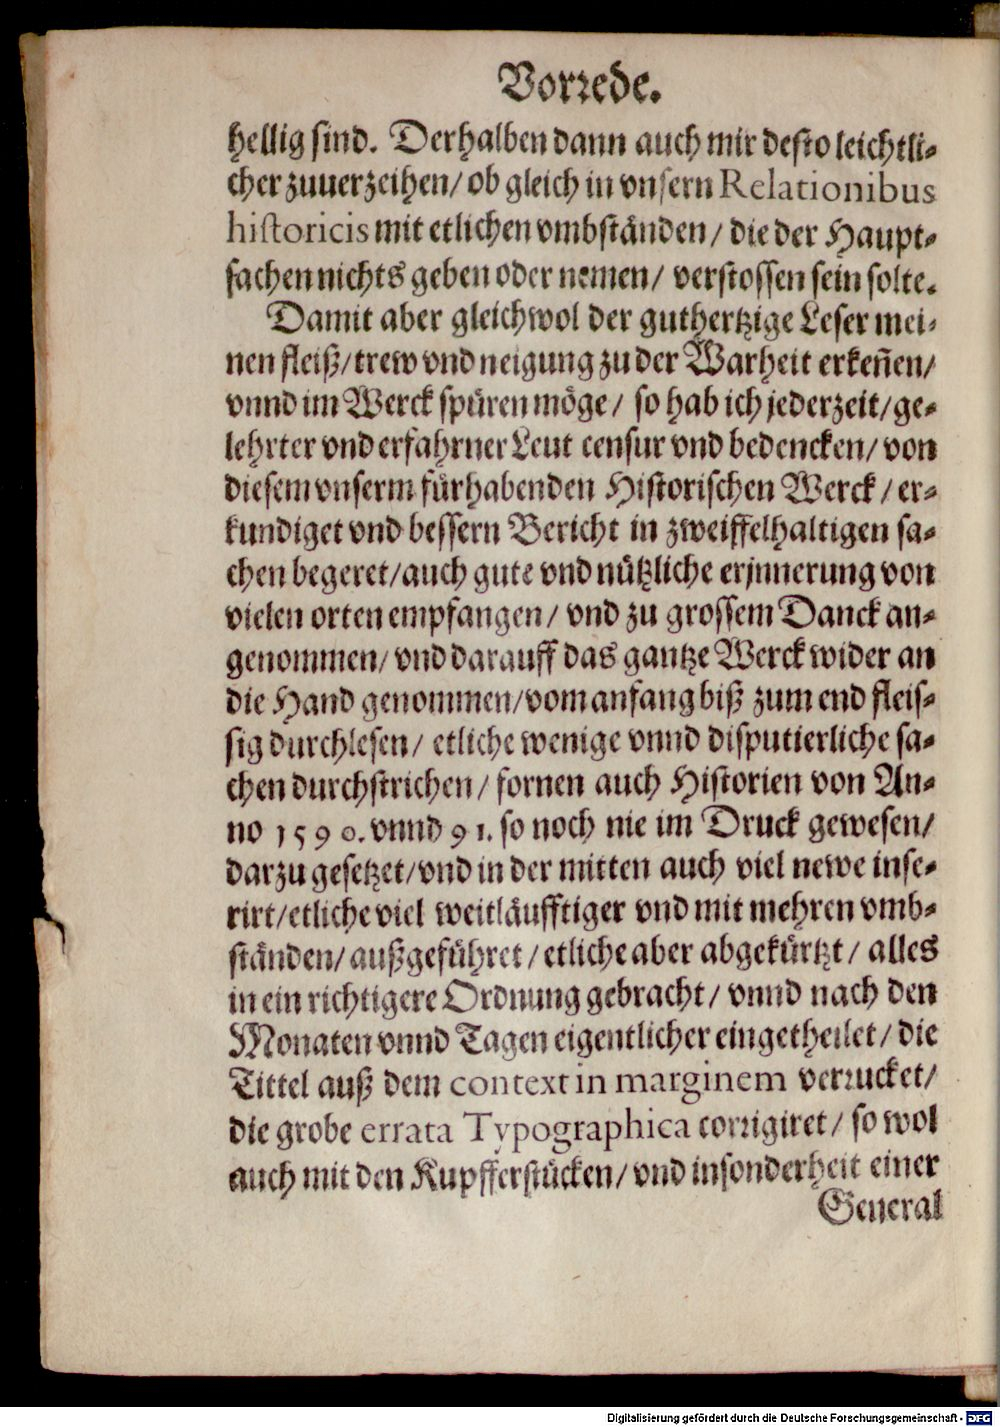 Vorrede.
hellig sind. Derhalben dann auch mir desto leichtli-
cher zuuerzeihen/ ob gleich in vnsern Relationibus
historicis mit etlichen vmbständen/ die der Haupt-
sachen nichts geben oder nemen/ verstossen sein solte.
Damit aber gleichwol der guthertzige Leser mei-
nen fleiß/ trew vnd neigung zu der Warheit erkeñen/
vnnd im Werck spüren möge/ so hab ich jederzeit/ ge-
lehrter vnd erfahrner Leut censur vnd bedencken/ von
diesem vnserm fürhabenden Historischen Werck/ er-
kundiget vnd bessern Bericht in zweiffelhaltigen sa-
chen begeret/ auch gute vnd nützliche erjnnerung von
vielen orten empfangen/ vnd zu grossem Danck an-
genommen/ vnd darauff das gantze Werck wider an
die Hand genommen/ vom anfang biß zum end fleis-
sig durchlesen/ etliche wenige vnnd disputierliche sa-
chen durchstrichen/ fornen auch Historien von An-
no 1590. vnnd 91. so noch nie im Druck gewesen/
darzu gesetzet/ vnd in der mitten auch viel newe inse-
rirt/ etliche viel weitläufftiger vnd mit mehren vmb-
ständen/ außgeführet/ etliche aber abgekürtzt/ alles
in ein richtigere Ordnung gebracht/ vnnd nach den
Monaten vnnd Tagen eigentlicher eingetheilet/ die
Tittel auß dem context in marginem verrucket/
die grobe errata Typographica corrigiret/ so wol
auch mit den Kupfferstücken/ vnd insonderheit einer
General
Digitalisierung gefördert durch die Deutsche Forschungsgemeinschaft - DFG